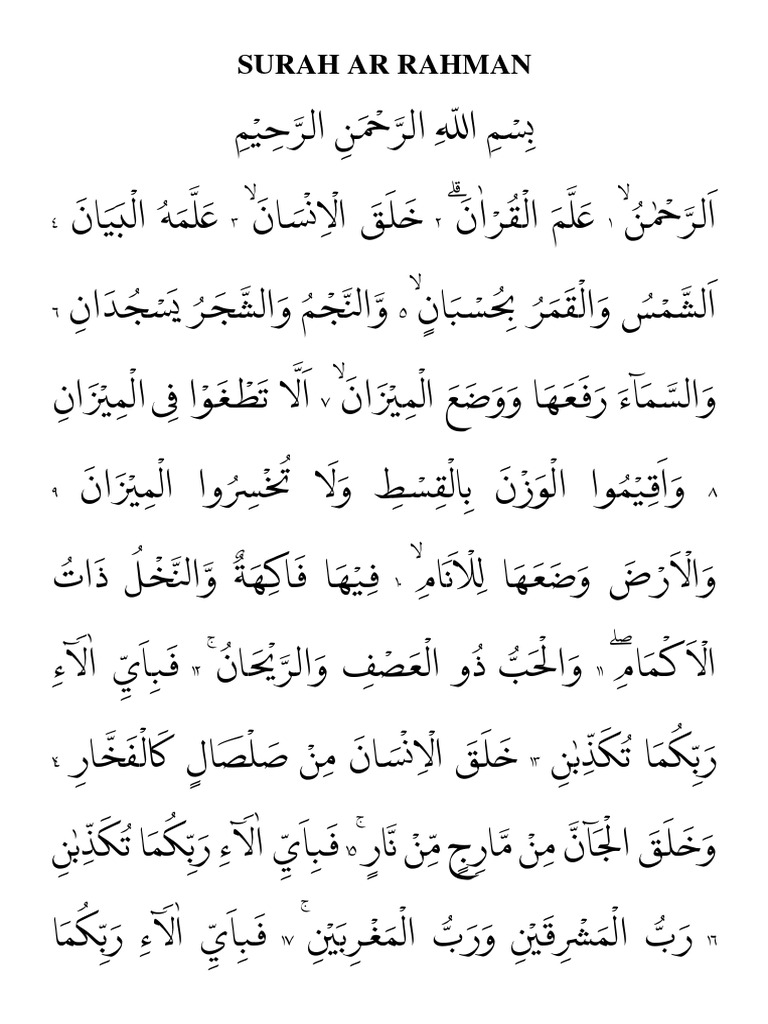 SURAH AR RAHMAN
بِسْمِ اللّٰهِ الرَّحْمَنِ الرَّحِيْمِ
اَلرَّحْمٰنُۙ ١ عَلَّمَ الْقُرْاٰنَۗ ٢ خَلَقَ الْاِنْسَانَۙ ٣ عَلَّمَهُ الْبَيَانَ ٤
اَلشَّمْسُ وَالْقَمَرُ بِحُسْبَانٍۙ ٥ وَّالنَّجْمُ وَالشَّجَرُ يَسْجُدَانِ ٦
وَالسَّمَاۤءَ رَفَعَهَا وَوَضَعَ الْمِيْزَانَۙ ٧ اَلَّا تَطْغَوْا فِى الْمِيْزَانِ
٨ وَاَقِيْمُوا الْوَزْنَ بِالْقِسْطِ وَلَا تُخْسِرُوا الْمِيْزَانَ ٩
وَالْاَرْضَ وَضَعَهَا لِلْاَنَامِۙ ١٠ فِيْهَا فَاكِهَةٌ وَّالنَّخْلُ ذَاتُ
الْاَكْمَامِۖ ١١ وَالْحَبُّ ذُو الْعَصْفِ وَالرَّيْحَانُۚ ١٢ فَبِاَيِّ اٰلَاۤءِ
رَبِّكُمَا تُكَذِّبٰنِ ١٣ خَلَقَ الْاِنْسَانَ مِنْ صَلْصَالٍ كَالْفَخَّارِ ١٤
وَخَلَقَ الْجَاۤنَّ مِنْ مَّارِجٍ مِّنْ نَّارٍۚ ١٥ فَبِاَيِّ اٰلَاۤءِ رَبِّكُمَا تُكَذِّبٰنِ
١٦ رَبُّ الْمَشْرِقَيْنِ وَرَبُّ الْمَغْرِبَيْنِۚ ١٧ فَبِاَيِّ اٰلَاۤءِ رَبِّكُمَا